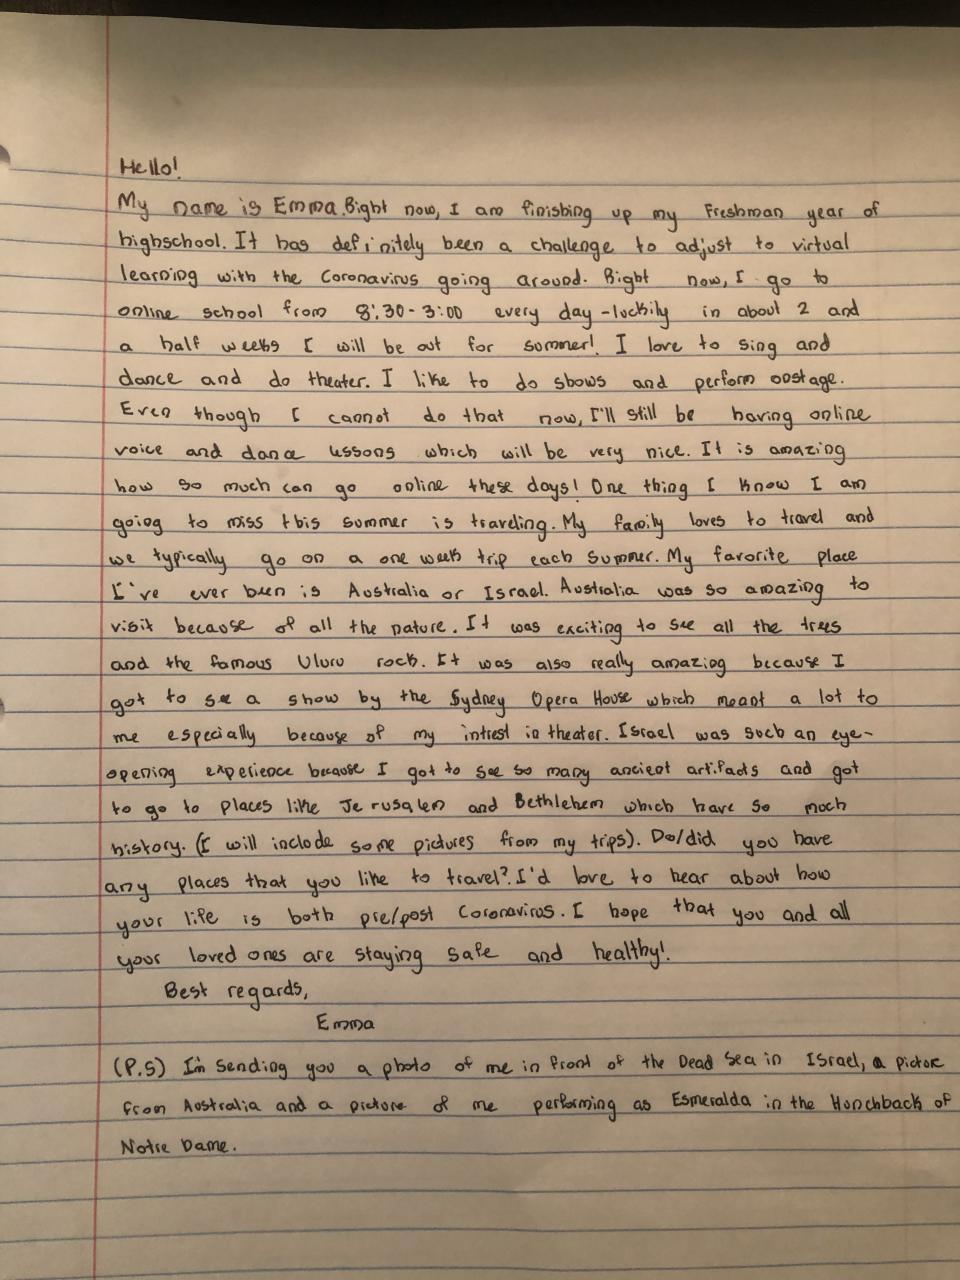 Hello!
My name is Emma. Right now, I am finishing up my Freshman year of
highschool. It has definitely been a challenge to adjust to virtual
learning with the Coronavirus going around. Right now, I go to
online school from 8:30-3:00 every day - luckily in about 2 and
a half weeks I will be out for summer! I love to sing and
dance and do theater. I like to do shows and perform onstage.
Even though I cannot do that now, I'll still be having online
voice and dance lessons which will be very nice. It is amazing
how so much can go online these days! One thing I know I am
going to miss this summer is traveling. My family loves to travel and
we typically go on a one week trip each summer. My favorite place
I've ever been is Australia or Israel. Australia was so amazing to
visit because of all the nature. It was exciting to see all the trees
and the famous Uluru rock. It was also really amazing because I
got to see a show by the Sydney Opera House which meant a lot to
me especially because of my intrest in theater. Israel was such an eye-
opening experience because I got to see so many ancient artifacts and got
to go to places like Jerusalem and Bethlehem which have so much
history. (I will include some pictures from my trips). Do/did you have
any places that you like to travel? I'd love to hear about how
your life is both pre/post Coronavirus. I hope that you and all
your loved ones are staying safe and healthy!
Best regards,
Emma
(P.S) I'm sending you a photo of me in front of the Dead Sea in Israel, a picture
from Australia and a picture of me performing as Esmeralda in the Hunchback of
Notre Dame.